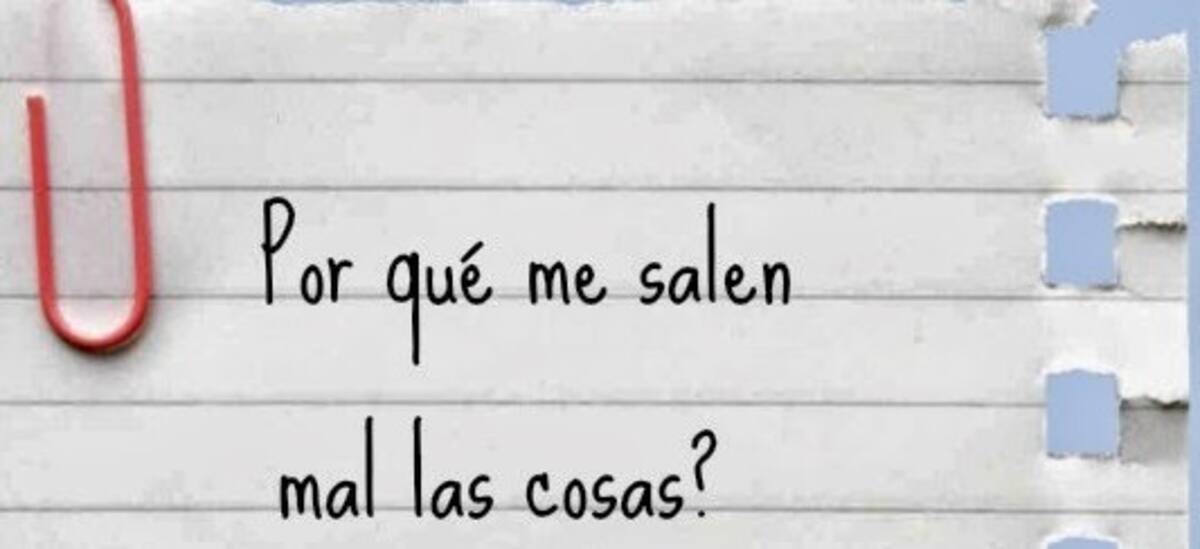 Por qué me salen
mal las cosas?